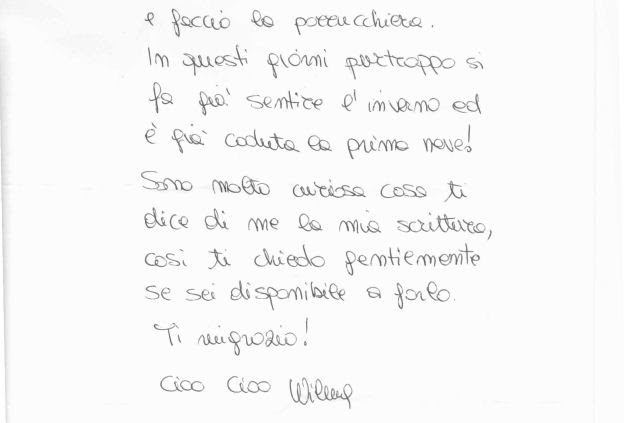 e faccio la parrucchiera.
In questi giorni purtroppo si
fa già sentire l'inverno ed
è già caduta la prima neve!
Sono molto curiosa cosa ti
dice di me la mia scrittura,
così ti chiedo gentilmente
se sei disponibile a farlo.
Ti ringrazio!
Ciao Ciao